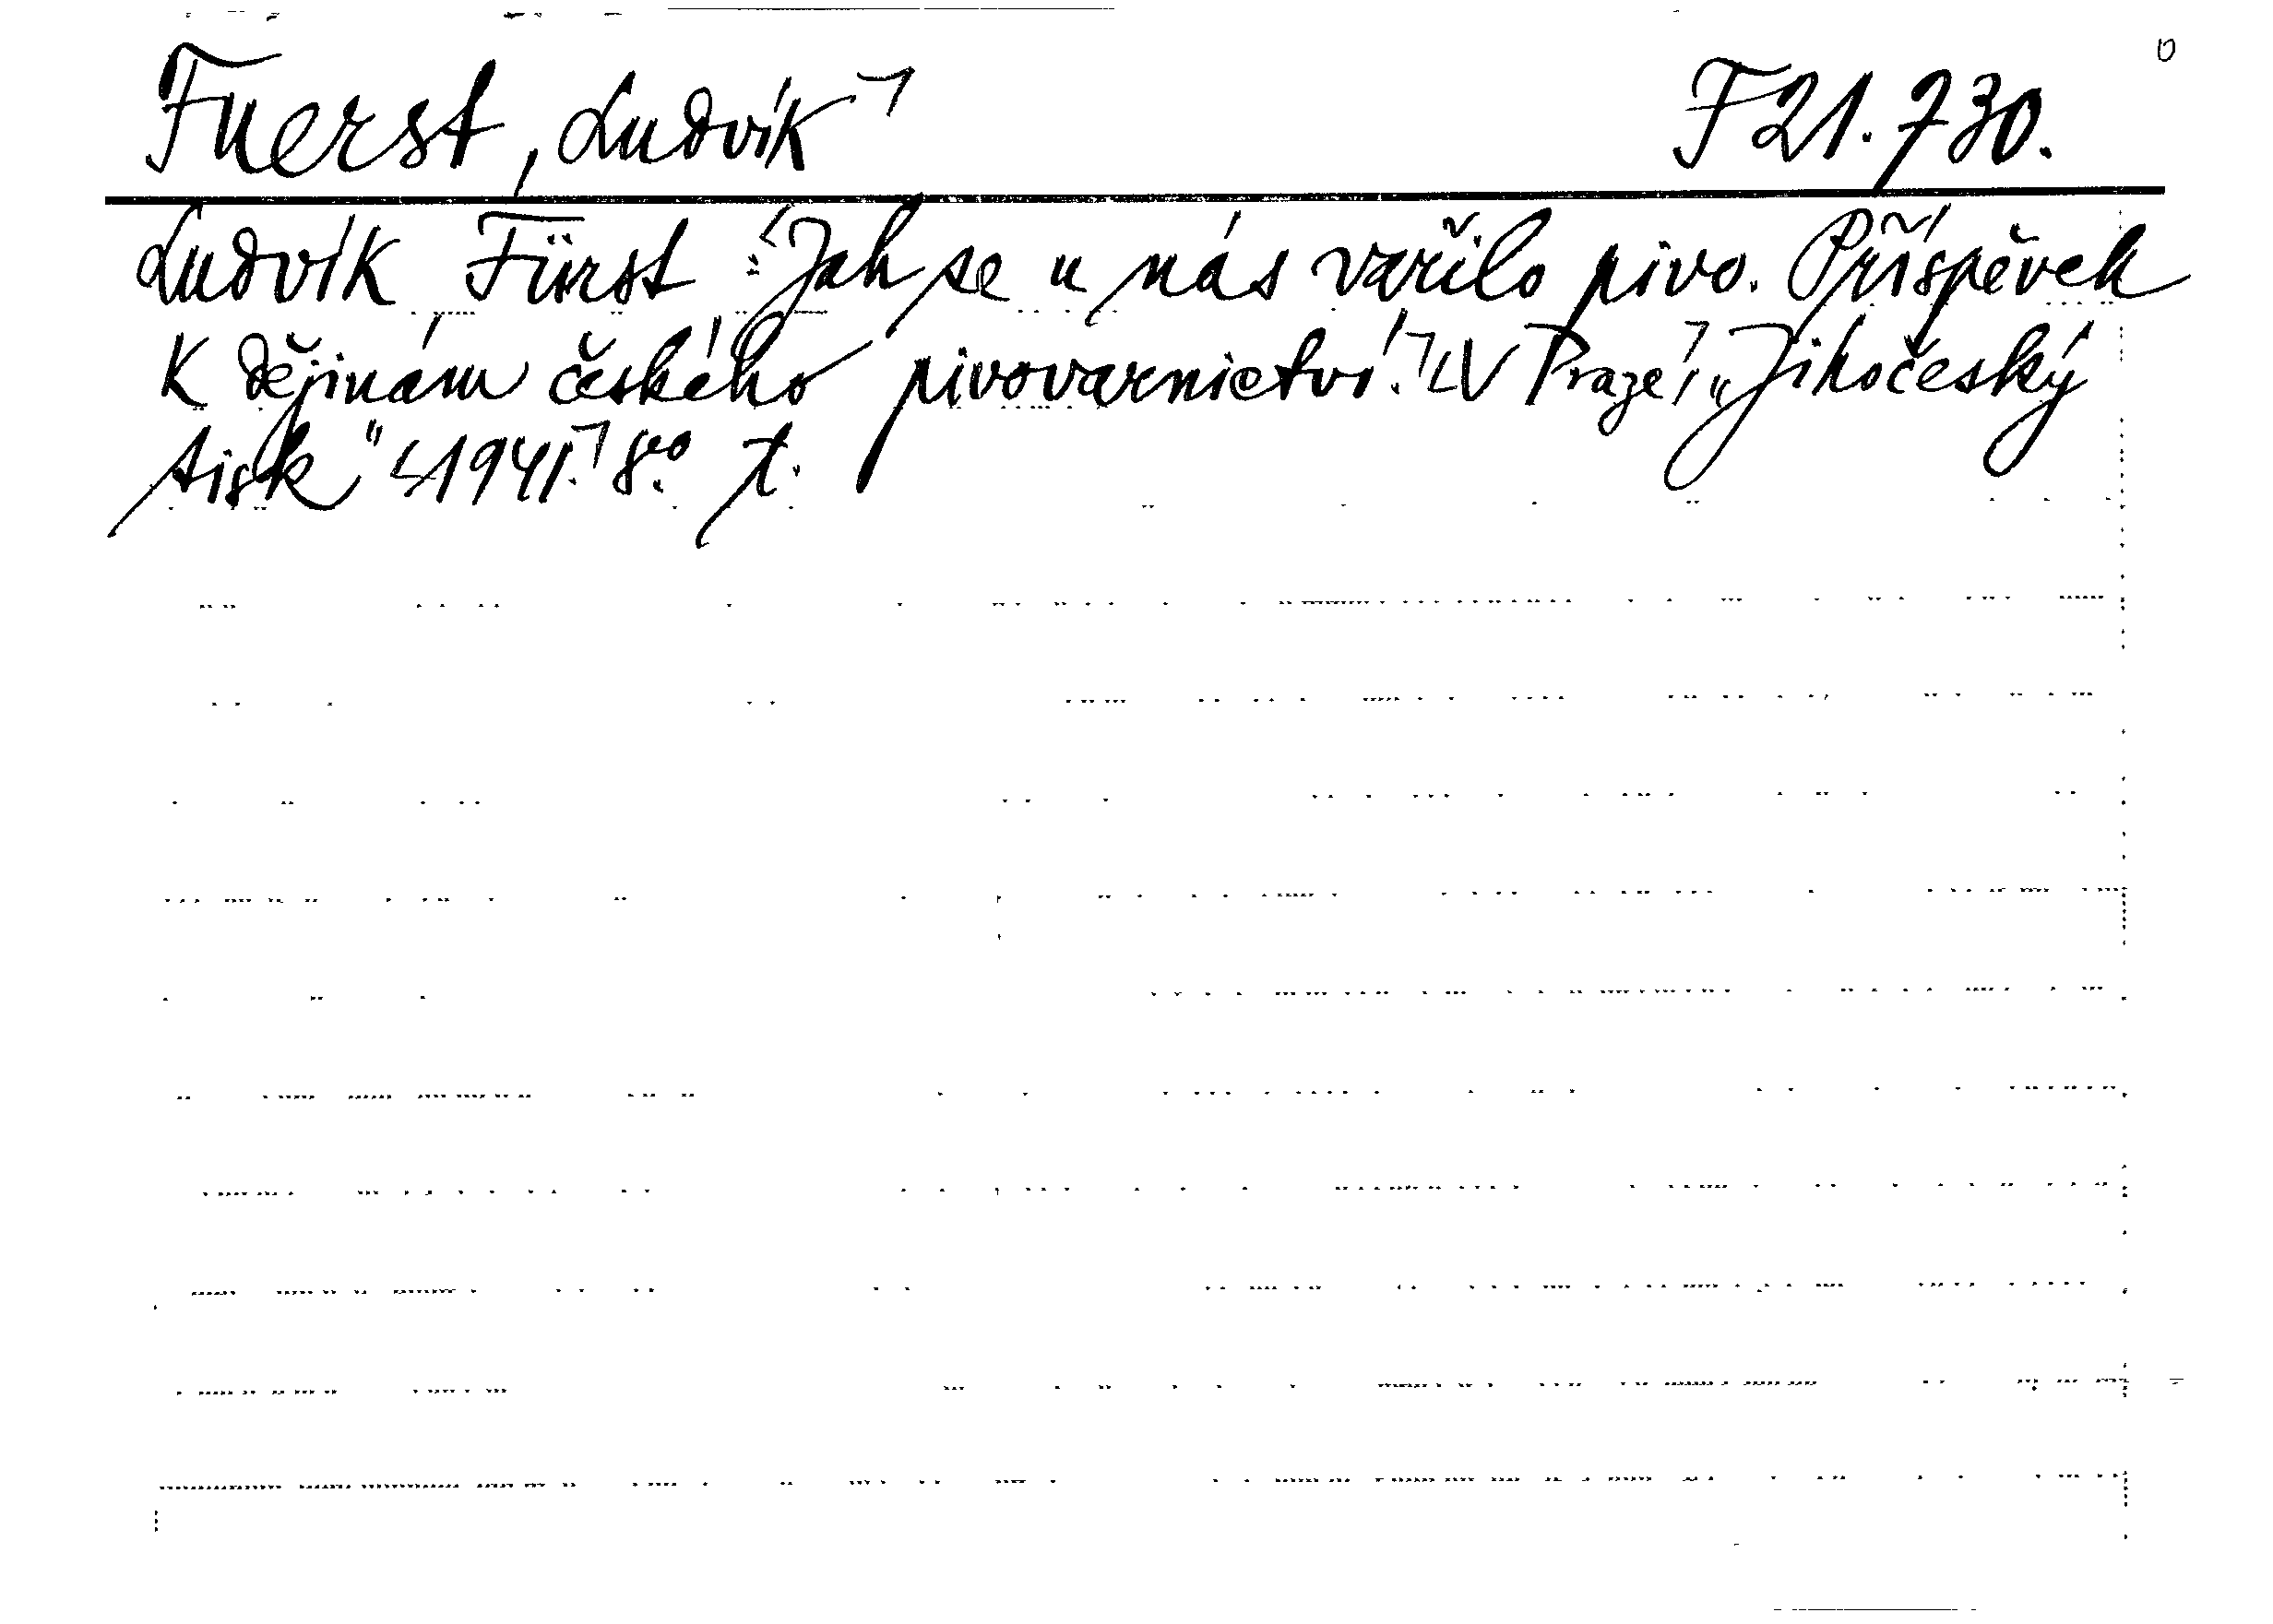 Fuerst, Ludvík ⌉ F 21.730.
Ludvík Fürst: Jak se u nás vařilo pivo. Příspěvek
k dějinám českého pivovarnictví. ⌉ ⌊V Praze,⌉ „Jihočeský
tisk" ⌊1941.⌉ 8º. t.